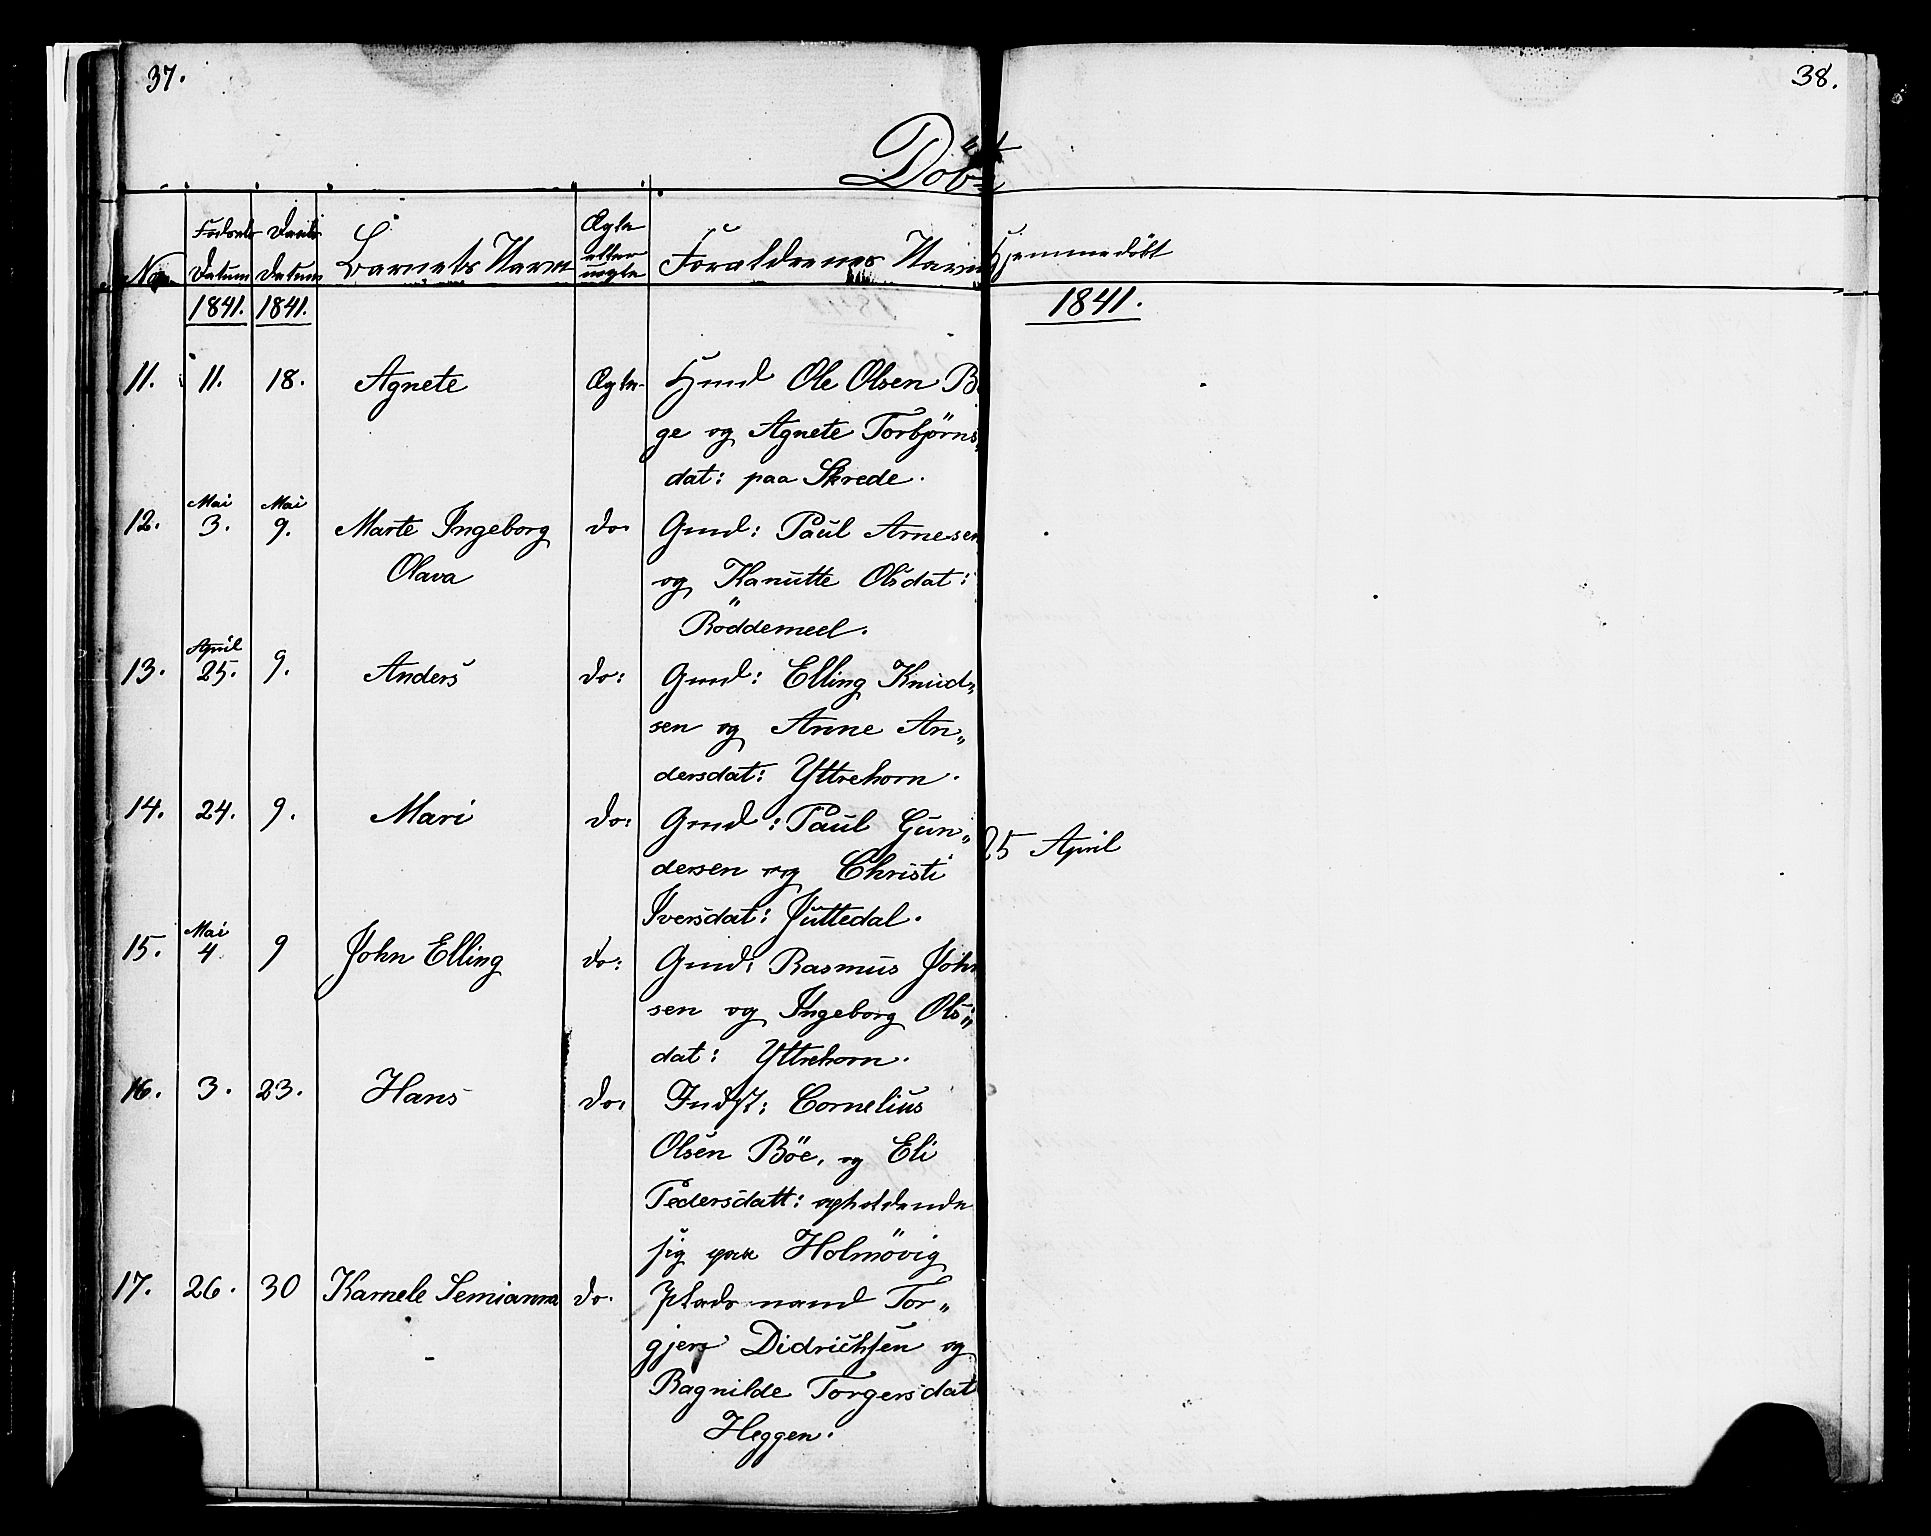 37.
38.
Döbt
No Födsels Datum Daabs Datum Barnets Navn Ægte eller uægte Forældrenes Navn Hjemmedöbt
1841. 1841. 1841.
11. 11. 18. Agnete Ægte Ole Olsen B
ge og Agnete Torbjörns„
dat: paa Skrede.
Mai Mai
12. 3. 9. Marte Ingeborg do Gmd: Paul Arnesen
Olava og Hanutte Olsdat:
Röddemeel.
April
13. 25. 9. Anders do: Gmd: Elling Knud„
sen og Anne An„
dersdat: Yttrehorn.
14. 24. 9. Mari do: Gmd: Paul Gun„ 25 April
dersen og Christi
Iversdat: Juttedal.
Mai
15. 4. 9 John Elling do: Gmd: Rasmus John
sen og Ingeborg Ols„
dat: Yttrehorn.
16. 3. 23. Hans do: Indst: Cornelius
Olsen Böe, og Eli
Pedersdatt: opholdende
sig paa Holmövig
17. 26. 30 Kamele Semianna do. Pladsmand Tor„
gjers Didrichsen og
Ragnilde Torgersdat
Heggen.